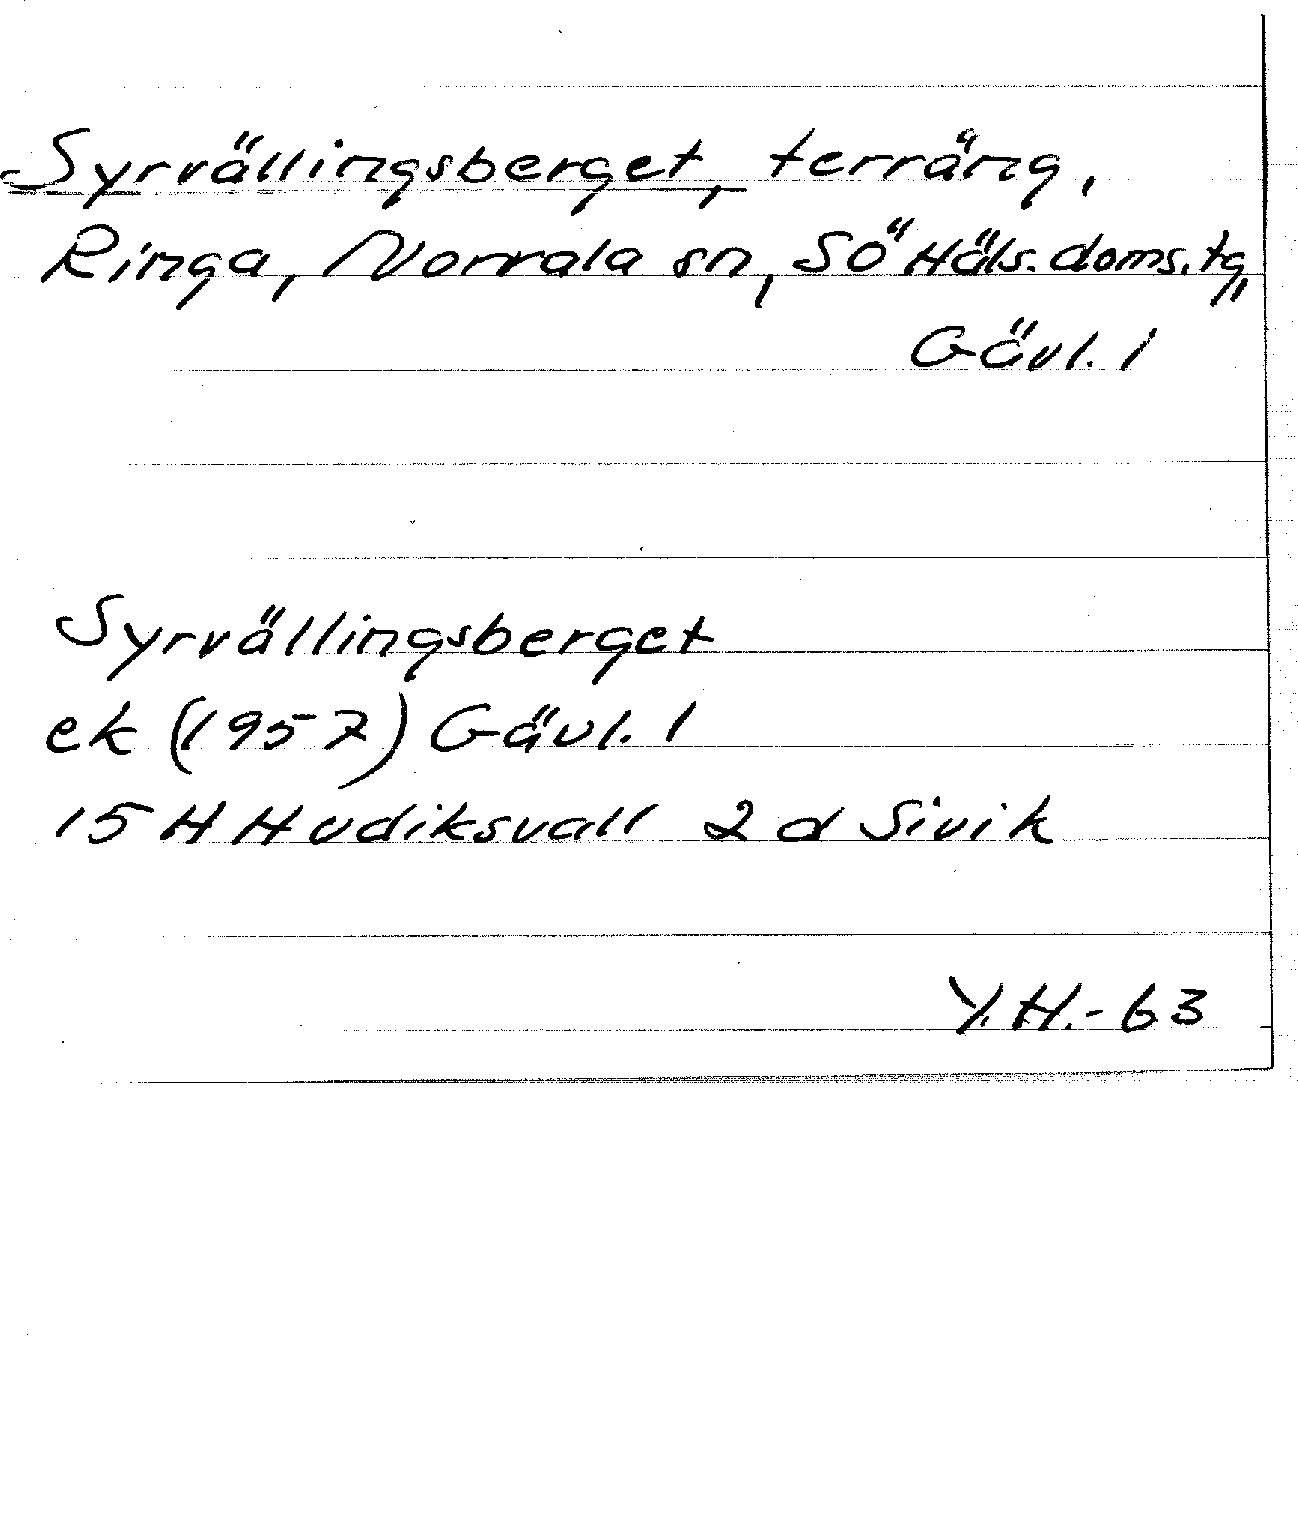 Syrvällingsberget, terräng,
Ringa, Norrala sn, Sö Häls. doms.tg,
Gävl. l
Syrvällingsberget
ek (1957) Gävl. l
15 H Hudiksvall 2 d Sivik
Y.H.-63